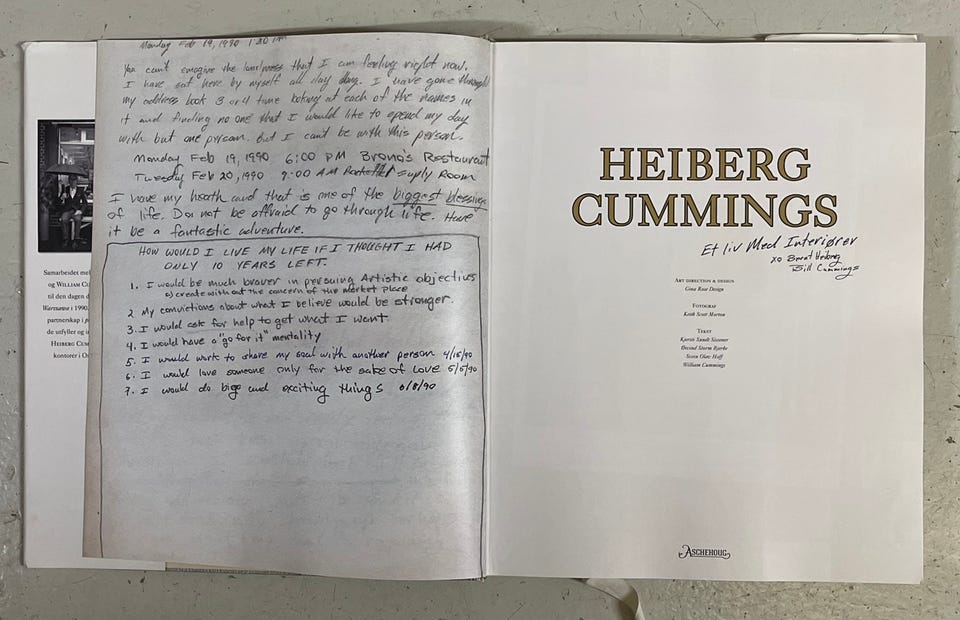 Samarbeidet mel
og William Cu
til den dagen d
Warsaunne i 1990.
partnerskap i p
de utfyller og in
Heiberg Cumm
kontorer i Os
Monday Feb 19, 1990 1:20
You can't emogine the lonelyness that I am feeling right now.
I have sat here by myself all day long. I have gone through
my address book 3 or 4 time looking at each of the names in
it and finding no one that I would like to spend my day
with but one person. But I can't be with this person.
Monday Feb 19, 1990 6:00 PM Bromo's Restaurant
Tuesday Feb 20, 1990 9:00 AM Suply Room
I have my heath and that is one of the biggest blessings
of life. Do not be affraid to go through life. Have
it be a fantastic adventure.
HOW WOULD I LIVE MY LIFE IF I THOUGHT I HAD
ONLY 10 YEARS LEFT.
1. I would be much braver in persuing Artistic objectives
a) create without the concern of the market place
2 My convictions about what I believe would be stronger.
3. I would ask for help to get what I want
4. I would have a "go for it" mentality
5. I would work to share my soul with another person 4/15/90
6. I would love someone only for the sake of Love 5/5/90
7. I would do bigg and exciting things 6/8/90
HEIBERG
CUMMINGS
Et liv Med Interiører
xo Bernt Heiberg
Bill Cummings
Art direction & design
Gina Rose Design
Fotograf
Keith Scott Morton
Tekst
Kjersti Sundt Sissener
Øivind Storm Bjerke
Svein Olav Hoff
William Cummings
Aschehoug